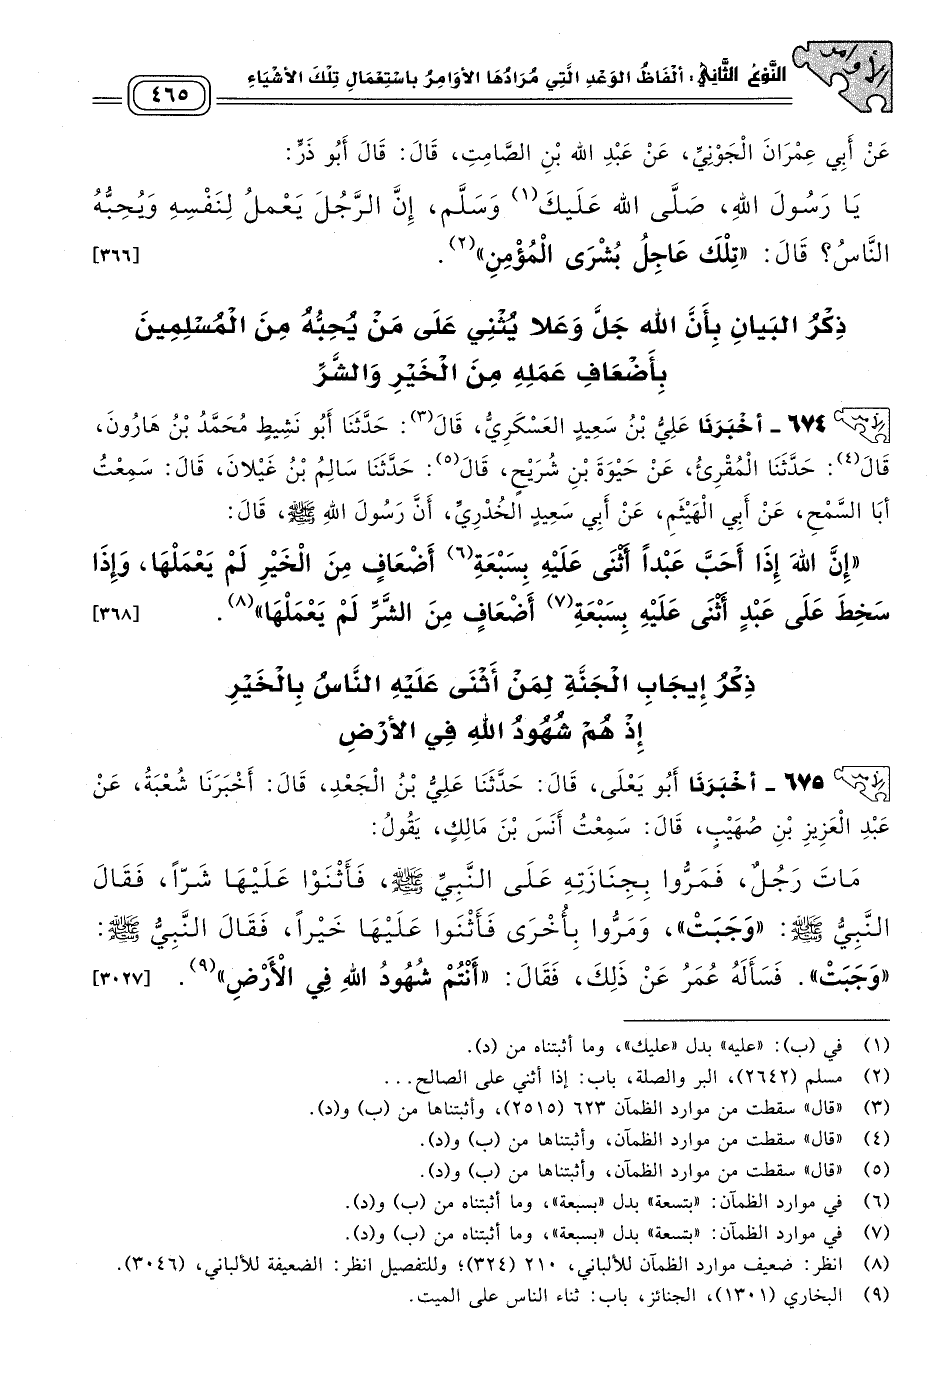 الأوامر
النَّوْعُ الثَّانِي: ألفَاظُ الوَعْدِ الَّتِي مُرَادُهَا الأوَامِرُ بِاسْتِعْمَالِ تِلْكَ الأشْيَاءِ
٤٦٥
عَنْ أَبِي عِمْرَانَ الْجَوْنِيِّ، عَنْ عَبْدِ الله بْنِ الصَّامِتِ، قَالَ: قَالَ أَبُو ذَرٍّ:
يَا رَسُولَ اللهِ، صَلَّى الله عَلَيكَ(١) وَسَلَّم، إِنَّ الرَّجُلَ يَعْملُ لِنَفْسِهِ وَيُحِبُّهُ
النَّاسُ؟ قَالَ: «تِلْكَ عَاجِلُ بُشْرَى الْمُؤْمِنِ»(٢). [٣٦٦]
ذِكْرُ البَيانِ بِأَنَّ الله جَلَّ وَعَلا يُثْنِي عَلَى مَنْ يُحِبُّهُ مِنَ الْمُسْلِمِينَ
بِأَضْعَافِ عَمَلِهِ مِنَ الْخَيْرِ وَالشَّرِّ
الأوامر ٦٧٤ ـ أخْبَرَنَا عَلِيُّ بْنُ سَعِيدٍ العَسْكَرِيُّ، قَالَ(٣): حَدَّثَنَا أَبُو نَشِيطٍ مُحَمَّدُ بْنُ هَارُونَ،
قَالَ(٤): حَدَّثَنَا الْمُقْرِئُ، عَنْ حَيْوَةَ بْنِ شُرَيْحٍ، قَالَ(٥): حَدَّثَنَا سَالِمُ بْنُ غَيْلانَ، قَالَ: سَمِعْتُ
أبَا السَّمْحِ، عَنْ أَبِي الْهَيْثَمِ، عَنْ أَبِي سَعِيدٍ الخُدْرِيِّ، أَنَّ رَسُولَ اللهِ ﷺ، قَالَ:
«إِنَّ اللهَ إِذَا أَحَبَّ عَبْداً أَثْنَى عَلَيْهِ بِسَبْعَةِ(٦) أَضْعَافٍ مِنَ الْخَيْرِ لَمْ يَعْمَلْهَا، وَإِذَا
سَخِطَ عَلَى عَبْدٍ أَثْنَى عَلَيْهِ بِسَبْعَةِ(٧) أَضْعَافٍ مِنَ الشَّرِّ لَمْ يَعْمَلْهَا»(٨). [٣٦٨]
ذِكْرُ إِيجَابِ الْجَنَّةِ لِمَنْ أَثْنَى عَلَيْهِ النَّاسُ بِالْخَيْرِ
إِذْ هُمْ شُهُودُ اللهِ فِي الأرْضِ
الأوامر ٦٧٥ ـ أخْبَرَنَا أَبُو يَعْلَى، قَالَ: حَدَّثَنَا عَلِيُّ بْنُ الْجَعْدِ، قَالَ: أَخْبَرَنَا شُعْبَةُ، عَنْ
عَبْدِ الْعَزِيزِ بْنِ صُهَيْبٍ، قَالَ: سَمِعْتُ أَنَسَ بْنَ مَالِكٍ، يَقُولُ:
مَاتَ رَجُلٌ، فَمَرُّوا بِجِنَازَتِهِ عَلَى النَّبِيِّ ﷺ، فَأَثْنَوْا عَلَيْهَا شَرّاً، فَقَالَ
النَّبِيُّ ﷺ: «وَجَبَتْ»، وَمَرُّوا بِأُخْرَى فَأَثْنَوا عَلَيْهَا خَيْراً، فَقَالَ النَّبِيُّ ﷺ:
«وَجَبَتْ». فَسَأَلَهُ عُمَرُ عَنْ ذَلِكَ، فَقَالَ: «أَنْتُمْ شُهُودُ اللهِ فِي الْأَرْضِ»(٩). [٣٠٢٧]
(١) في (ب): «عليه» بدل «عليك»، وما أثبتناه من (د).
(٢) مسلم (٢٦٤٢)، البر والصلة، باب: إذا أثني على الصالح...
(٣) «قال» سقطت من موارد الظمآن ٦٢٣ (٢٥١٥)، وأثبتناها من (ب) و(د).
(٤) «قال» سقطت من موارد الظمآن، وأثبتناها من (ب) و(د).
(٥) «قال» سقطت من موارد الظمآن، وأثبتناها من (ب) و(د).
(٦) في موارد الظمآن: «بتسعة» بدل «بسبعة»، وما أثبتناه من (ب) و(د).
(٧) في موارد الظمآن: «بتسعة» بدل «بسبعة»، وما أثبتناه من (ب) و(د).
(٨) انظر: ضعيف موارد الظمآن للألباني، ٢١٠ (٣٢٤)؛ وللتفصيل انظر: الضعيفة للألباني، (٣٠٤٦).
(٩) البخاري (١٣٠١)، الجنائز، باب: ثناء الناس على الميت.